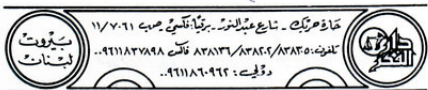 بيروت
لبنان
حارة حريك - شارع عبد النور - برقياً: فكسي - ص.ب ١١/٧٠٦١
تلفون: ٨٣٨٣٠٥/٨٣٨٢٠٢/٨٣٨١٣٦ فاكس ٩٦١١٨٣٧٨٩٨..
دولي: ٩٦١١٨٦٠٩٦٢..
دار الفكر